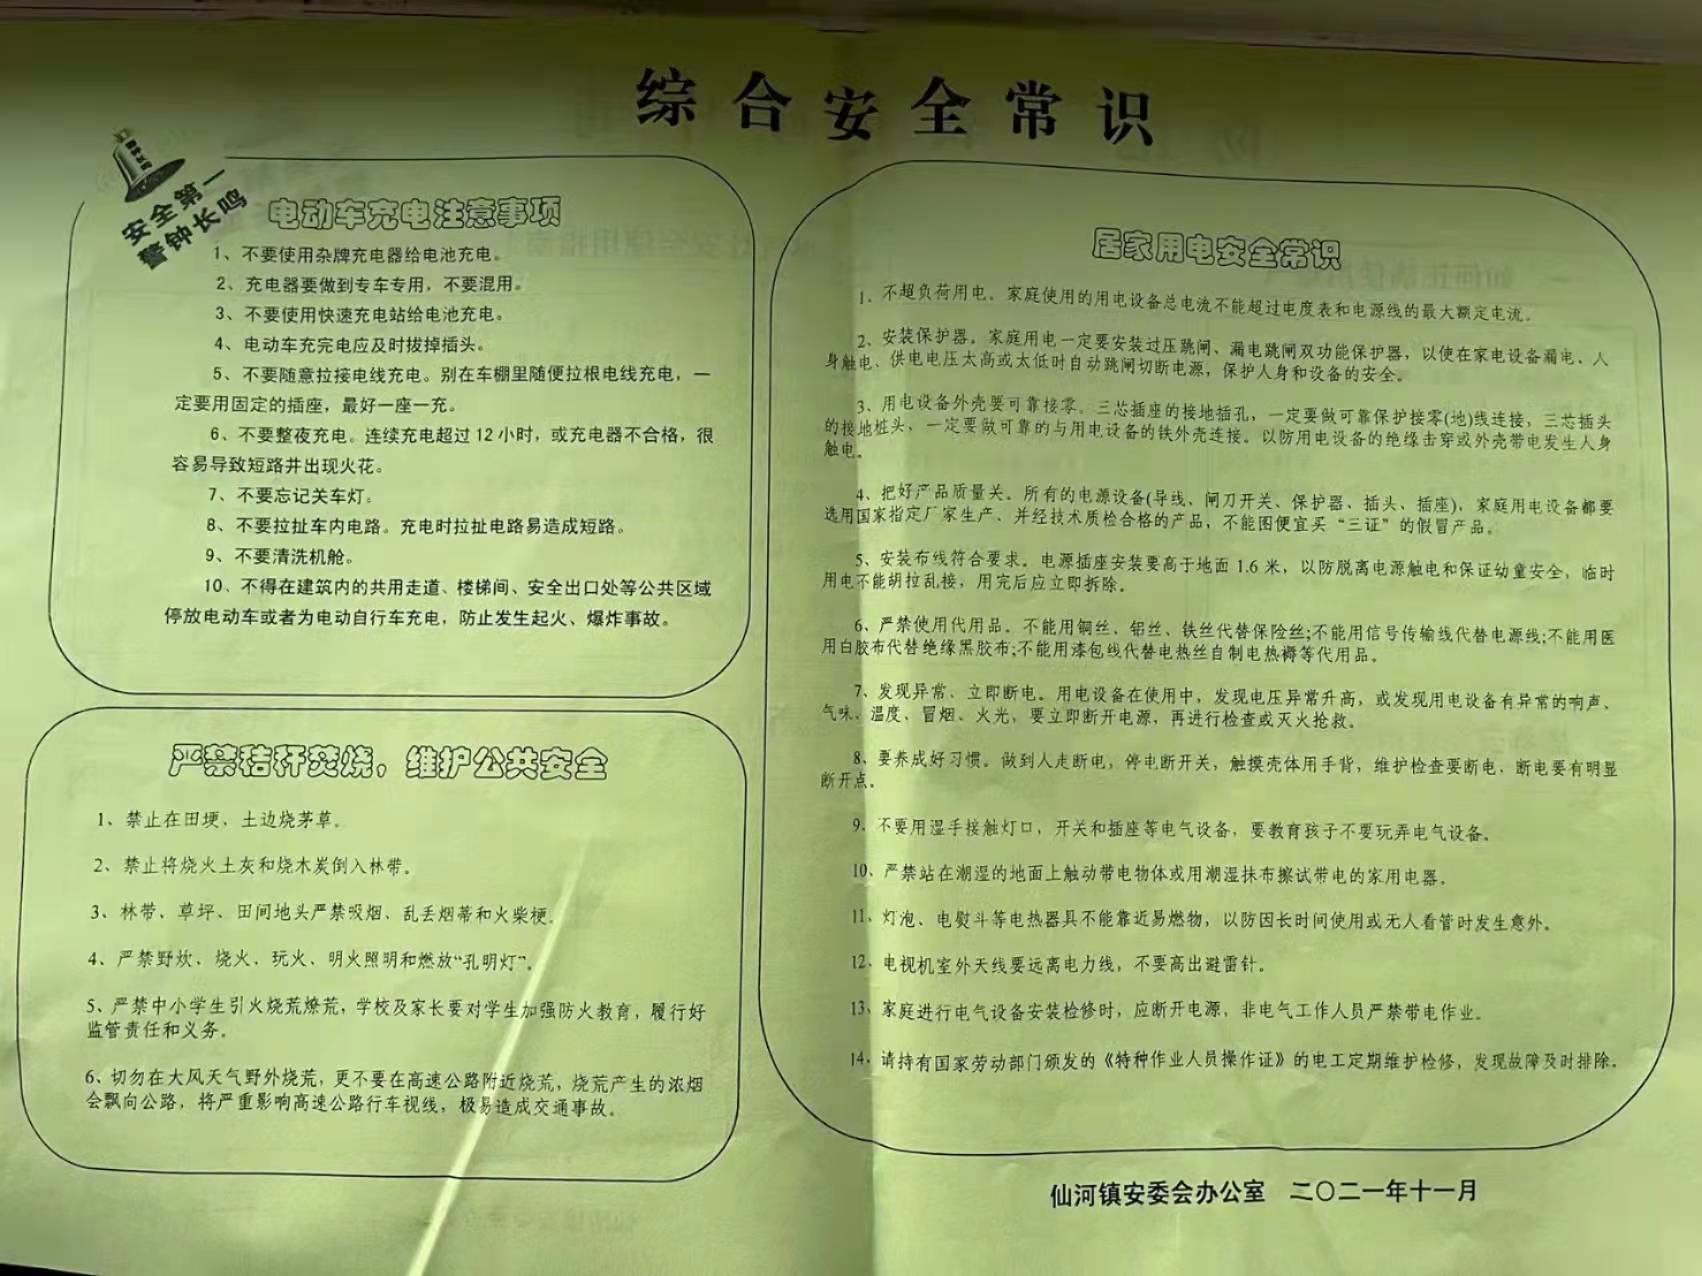 综合安全常识
安全第一
警钟长鸣
电动车充电注意事项
1、不要使用杂牌充电器给电池充电。
2、充电器要做到专车专用，不要混用。
3、不要使用快速充电站给电池充电。
4、电动车充完电应及时拔掉插头。
5、不要随意拉接电线充电。别在车棚里随便拉根电线充电，一
定要用固定的插座，最好一座一充。
6、不要整夜充电。连续充电超过12小时，或充电器不合格，很
容易导致短路井出现火花。
7、不要忘记关车灯。
8、不要拉扯车内电路。充电时拉扯电路易造成短路。
9、不要清洗机舱。
10、不得在建筑内的共用走道、楼梯间、安全出口处等公共区域
停放电动车或者为电动自行车充电，防止发生起火、爆炸事故。
严禁秸秆焚烧，维护公共安全
1、禁止在田埂、土边烧茅草。
2、禁止将烧火土灰和烧木炭倒入林带。
3、林带、草坪、田间地头严禁吸烟、乱丢烟蒂和火柴梗。
4、严禁野炊、烧火、玩火、明火照明和燃放“孔明灯”。
5、严禁中小学生引火烧荒燎荒，学校及家长要对学生加强防火教育，履行好
监管责任和义务。
6、切勿在大风天气野外烧荒，更不要在高速公路附近烧荒，烧荒产生的浓烟
会飘向公路，将严重影响高速公路行车视线，极易造成交通事故。
居家用电安全常识
1、不超负荷用电。家庭使用的用电设备总电流不能超过电度表和电源线的最大额定电流。
2、安装保护器。家庭用电一定要安装过压跳闸、漏电跳闸双功能保护器，以使在家电设备漏电、人
身触电、供电电压太高或太低时自动跳闸切断电源，保护人身和设备的安全。
3、用电设备外壳要可靠接零。三芯插座的接地插孔，一定要做可靠保护接零(地)线连接，三芯插头
的接地桩头，一定要做可靠的与用电设备的铁外壳连接。以防用电设备的绝缘击穿或外壳带电发生人身
触电。
4、把好产品质量关。所有的电源设备(导线、闸刀开关、保护器、插头、插座)，家庭用电设备都要
选用国家指定厂家生产、并经技术质检合格的产品，不能图便宜买“三证”的假冒产品。
5、安装布线符合要求。电源插座安装要高于地面1.6米，以防脱离电源触电和保证幼童安全，临时
用电不能胡拉乱接，用完后应立即拆除。
6、严禁使用代用品。不能用铜丝、铝丝、铁丝代替保险丝;不能用信号传输线代替电源线;不能用医
用白胶布代替绝缘黑胶布;不能用漆包线代替电热丝自制电热褥等代用品。
7、发现异常、立即断电。用电设备在使用中，发现电压异常升高，或发现用电设备有异常的响声、
气味、温度、冒烟、火光，要立即断开电源，再进行检查或灭火抢救。
8、要养成好习惯。做到人走断电，停电断开关，触摸壳体用手背，维护检查要断电，断电要有明显
断开点。
9、不要用湿手接触灯口，开关和插座等电气设备，要教育孩子不要玩弄电气设备。
10、严禁站在潮湿的地面上触动带电物体或用潮湿抹布擦试带电的家用电器。
11、灯泡、电熨斗等电热器具不能靠近易燃物，以防因长时间使用或无人看管时发生意外。
12、电视机室外天线要远离电力线，不要高出避雷针。
13、家庭进行电气设备安装检修时，应断开电源，非电气工作人员严禁带电作业。
14、请持有国家劳动部门颁发的《特种作业人员操作证》的电工定期维护检修，发现故障及时排除。
仙河镇安委会办公室 二〇二一年十一月